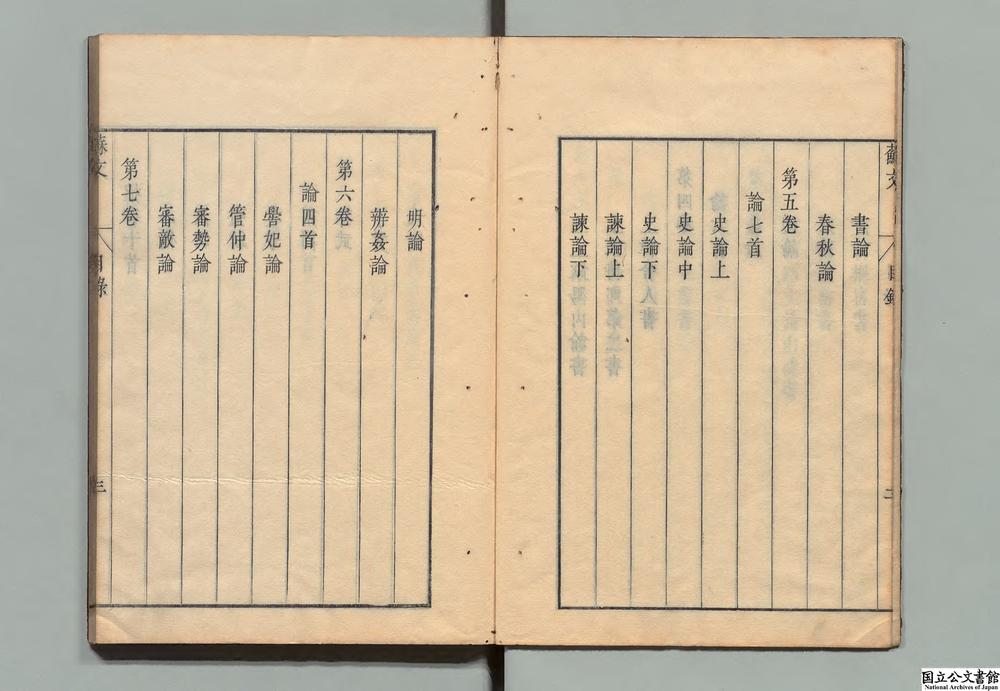 蘇文
目錄
二
書論
春秋論
第五卷
論七首
史論上
史論中
史論下
諫論上
諫論下
明論
辨姦論
第六卷
論四首
嚳妃論
管仲論
審勢論
審敵論
第七卷
蘇文
目錄
三
国立公文書館
National Archives of Japan